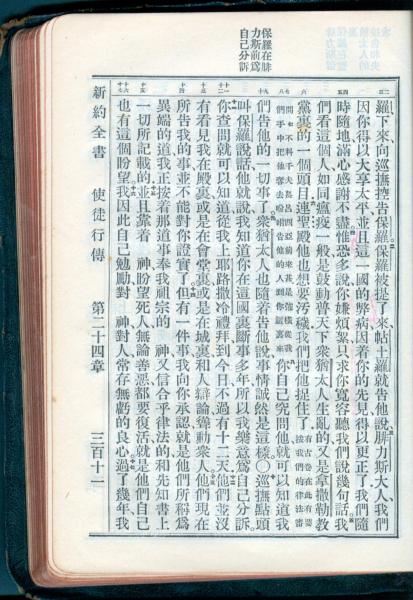 保羅在腓
力斯前爲
自己分訴
二三
羅下來向巡撫控告保羅保羅被提了來帖土羅就告他說腓力斯大人我們
因你得以大享太平並且這一國的弊病因着你的先見得以更正了我們隨
四五
時隨地滿心感謝不盡惟恐多說你嫌煩絮只求你寬容聽我們說幾句話我
們看這個人如同瘟疫一般是鼓動普天下衆猶太人生亂的又是拿撒勒教
六
黨裏的一個頭目連聖殿他也想要汚穢我們把他捉住了有古卷在此有要按我們的律法審
七八
問不料千夫長呂西亞前來甚是強橫從我們手中把他奪去吩咐告他的人到你這裏來你自己究問他就可以知道我
九十
們告他的一切事了衆猶太人也隨着告他說事情誠然是這樣○巡撫點頭
叫保羅說話他就說我知道你在這國裏斷事多年所以我樂意爲自己分訴
十一十二
你查問就可以知道從我上耶路撒冷禮拜到今日不過有十二天他們並沒
有看見我在殿裏或是在會堂裏或是在城裏和人辯論聳動衆人他們現在
十三
所告我的事並不能對你證實了但有一件事我向你承認就是他們所稱爲
十四
異端的道我正按着那道事奉我祖宗的　神又信合乎律法的和先知書上
十五
一切所記載的並且靠着　神盼望死人無論善惡都要復活就是他們自己
十六十七
也有這個盼望我因此自己勉勵對　神對人常存無虧的良心過了幾年我
新約全書　使徒行傳　第二十四章　三百十一